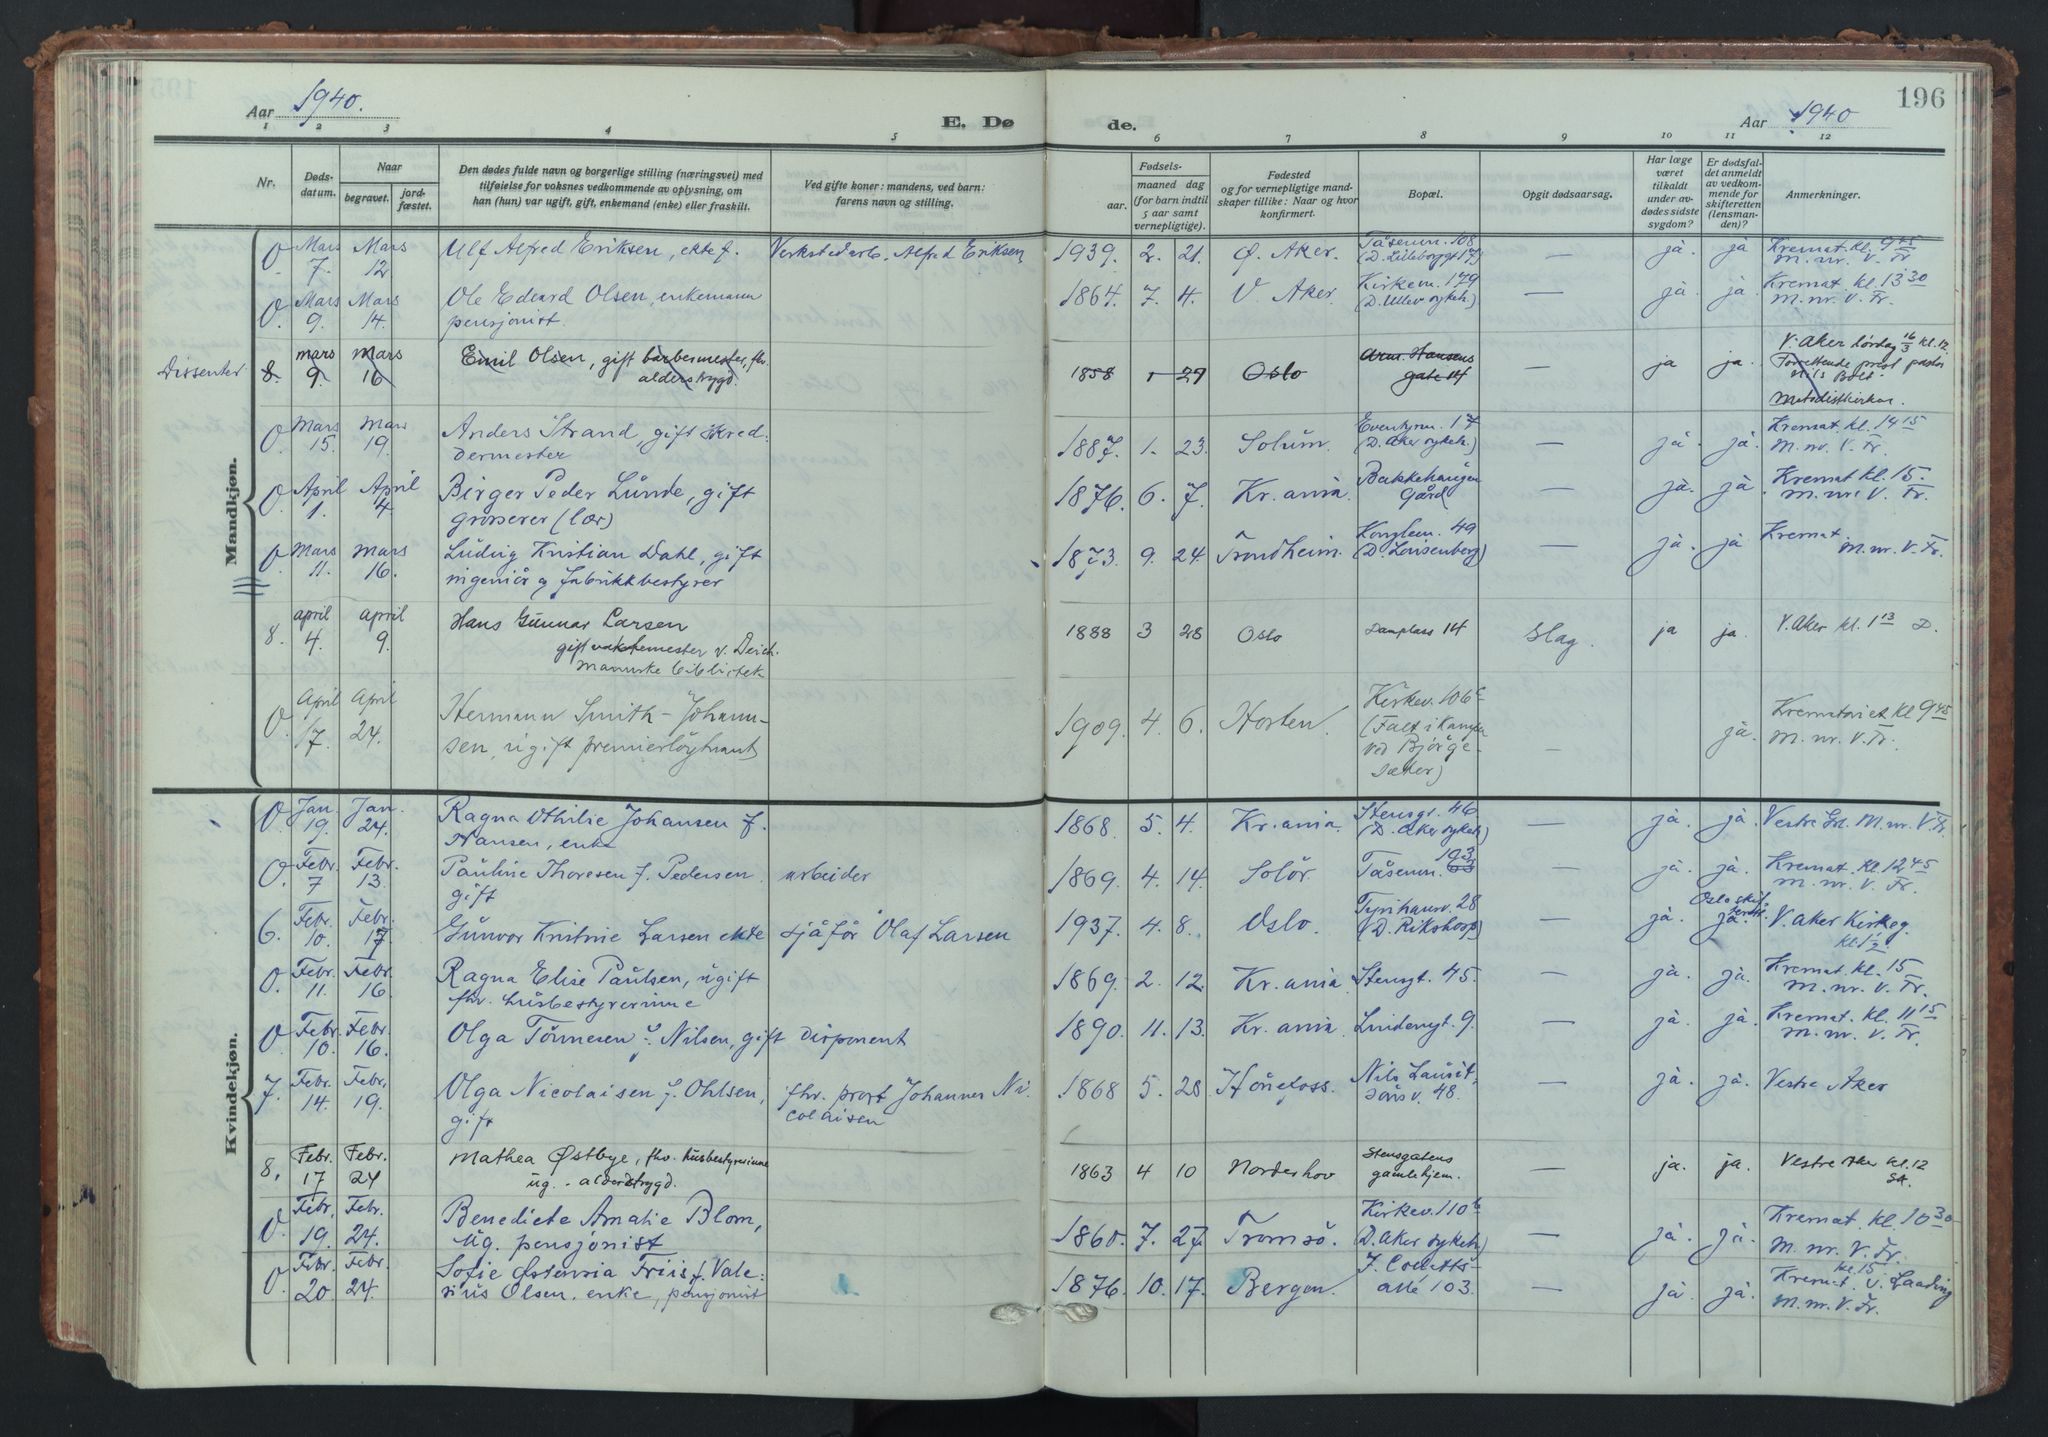 196
Aar 1940.
E. Dø de.
Aar 1940
1 2 3 4 5 6 7 8 9 10 11 12
Nr.
Døds-
datum.
Naar
begravet.
jord-
fæstet.
Den dødes fulde navn og borgerlige stilling (næringsvei) med
tilføielse for voksnes vedkommende av oplysning, om
han (hun) var ugift, gift, enkemand (enke) eller fraskilt.
Ved gifte koner: mandens, ved barn:
farens navn og stilling.
Fødsels-
aar.
maaned dag
(for barn indtil
5 aar samt
vernepligtige).
Fødested
og for vernepligtige mand-
skaper tillike: Naar og hvor
konfirmert.
Bopæl.
Opgit dødsaarsag.
Har læge
været
tilkaldt
under av-
dødes sidste
sygdom?
Er dødsfal-
det anmeldt
av vedkom-
mende for
skifteretten
(lensman-
den)?
Anmerkninger.
Mandkjøn.
O Mars 7. Mars 12 Ulf Alfred Eriksen, ekte f. Verkstedarb. Alfred Eriksen 1939. 2. 21. Ø. Aker. Tåsenvn. 108 — ja. ja Kremat. kl. 9 45
(D. Lilleborggt 17) M. nr. V. Fr
O. Mars 9. Mars 14. Ole Edvard Olsen, enkemann 1864. 7. 4. V. Aker. Kirkevn. 179 — ja. ja. Kremat. kl. 13 30
pensjonist. (D. Ullev. sykeh.) M. nr. V. Fr.
Dissenter 8. mars 9. mars 16 Emil Olsen, gift barbermester, fhv. 1858 1 29 Oslo Arm. Hansens — ja ja. V. Aker lørdag 16/3 kl. 12.
alderstrygd. gate 14 Forrettende prest pastor
Nils Bolt
Metodistkirken.
O Mars 15. Mars 19. Anders Strand, gift skred- 1887. 1. 23. Solum. Eventyrvn. 17 — ja. ja. Kremat. kl. 14 15
dermester (D. Aker sykeh.) M. nr. V. Fr.
O April 1. April 4. Birger Peder Lunde, gift 1876. 6. 7. Kr.ania. Bakkehaugen — ja. ja Kremat kl. 15.
grosserer (lær) Gård M. nr. V. Fr.
O Mars 11. mars 16. Ludvig Kristian Dahl, gift 1873. 9. 24. Trondheim. Konglevn. 49 — ja. ja Kremat.
ingeniør og fabrikkbestyrer (D. Lovisenberg) M. nr. V. Fr.
8. april 4. april 9. Hans Gunnar Larsen 1888 3 28 Oslo Damplass 14 Slag. ja ja. V. Aker kl. 1 13 D.
gift vaktmester v. Deich-
manske bibliotek
O. April 17. April 24. Hermann Smith-Johann- 1909. 4. 6. Horten. Kirkev. 106 c — ja. Krematoriet kl 9 45
sen, ugift premierløytnant (Falt i kamp M. nr. V. Fr.
ved Bjørge-
sæter)
Kvindekjøn.
O. Jan. 19. Jan. 24. Ragna Othilie Johansen f. 1868. 5. 4. Kr.ania. Stensgt. 46 ja. ja. Vestre Gr. M. nr. V. Fr.
Hansen, enke (D. Aker sykeh)
O. Febr. 7 Febr. 13. Pauline Thoresen f. Pedersen. arbeider 1869. 4. 14. Solör. Tåsenvn. 103 — ja. ja. Kremat. kl. 12 45
gift M. nr. V. Fr.
6. Febr. 10. Febr. 17 Gunvor Kristine Larsen ekte sjåför Olaf Larsen 1937. 4. 8. Oslo. Tyrihansv. 28 — ja. ja. V. Aker Kirkeg.
(D. Rikshosp) Oslo skif- kl. 1 1/2
O. Febr. 11. Febr. 16. Ragna Elise Paulsen, ugift 1869. 2. 12. Kr. ania Stensgt. 45. — ja. ja. Kremat. kl. 15
fhv. husbestyrerinne M. nr. V. Fr.
O Febr. 10. Febr. 16. Olga Tönnesen f. Nilsen, gift disponent 1890. 11. 13. Kr. ania. Lindengt. 9. — ja. ja. Kremat. kl. 11 15
M. nr. V. Fr.
7. Febr. 14. Febr. 19. Olga Nicolaisen f. Ohlsen, fhv. prost Johannes Ni- 1868 5. 28. Hönefoss. Nils Laurit- — ja. ja. Vestre Aker
gift colaisen söns v. 48.
8. Febr. 17 Febr. 24 Mathea Østbye, fhv. husbestyrerinne 1863 4 10 Norderhov Stensgatens — ja. ja. Vestre Aker kl. 12
ug. - alderstrygd. gamlehjem. St.
O. Febr. 19. Febr. 24. Benedicte Amalie Blom, 1860. 7. 27. Tromsö. Kirkev. 110 b — ja. ja. Kremat. kl. 10 30
ug. pensjonist (D. Aker sykeh) M. nr. V. Fr.
O. Febr. 20. Febr. 24. Sofie Østensia Friis f. Vale- 1876. 10. 17. Bergen. J. Colletts- — ja. ja. Kremat. kl. 15. v. Laading
rius Olsen. enke, pensjonist allé 103. M. nr. V. Fr.